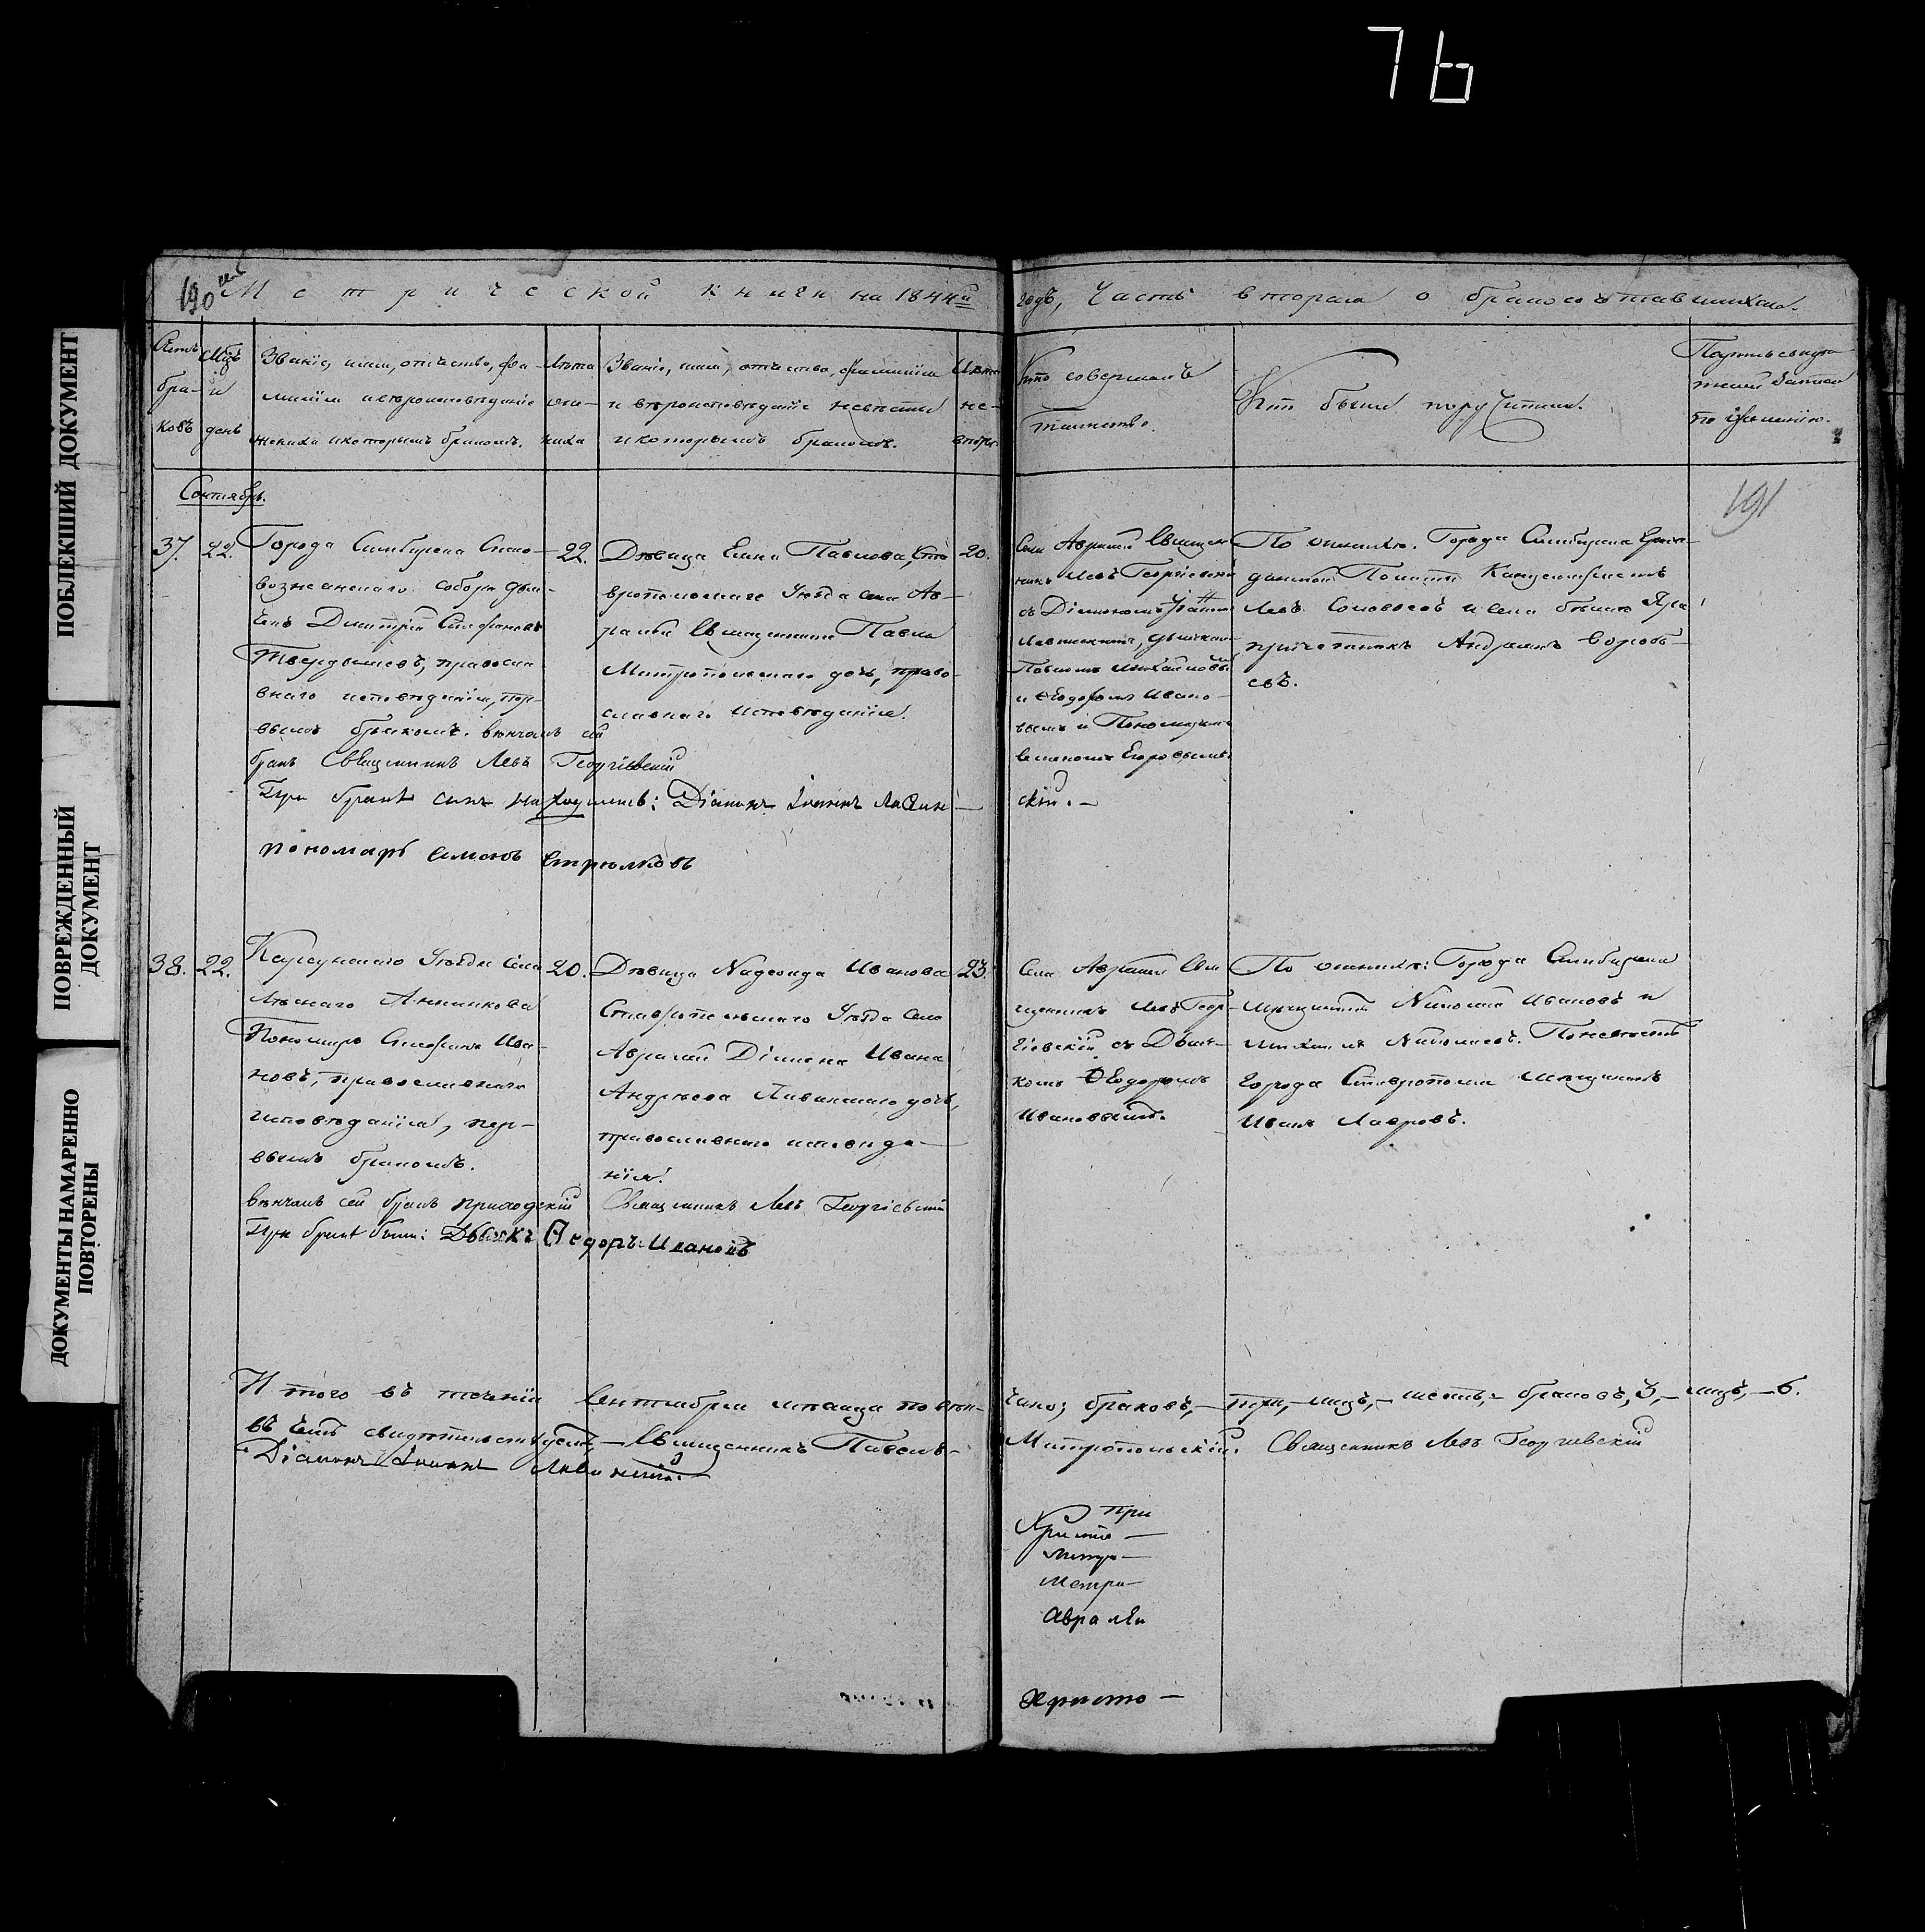 76
ПОБЛЕКШИЙ ДОКУМЕНТ
ПОВРЕЖДЕННЫЙ
ДОКУМЕНТ
ДОКУМЕНТЫ НАМАРЕННО
ПОВТОРЕНЫ
190
Метрической книги на 1844й
годъ, Часть вторая о бракосочетавшихся.
бра-
ковъ
и
день
Званіе, имя, отчество, фа-
миліи и вероисповѣданіе
жениха и которымъ бракомъ.
Лѣта
же-
ниха
Званіе, имя, отчество, фамилія
и вѣроисповѣданіе невѣсты
и которымъ бракомъ.
Лѣта
не-
вѣсты
Кто совершалъ
таинство.
Кто были поручители.
191
37.
22.
Города Симбирска Спасо-
вознесенскаго собора дья-
чекъ Дмитрій Стефановъ
Твердышевъ, правосла-
внаго исповѣданія, пер-
вымъ бракомъ. вѣнчалъ сей
бракъ Священникъ Левъ Георгіевскій
При бракѣ семъ находились: Діаконъ Іоаннъ Лавин-
скій.-
пономарь Симонъ
22.
Дѣвица Елена Павлова, Ста
вропольскаго Уѣзда села Ав-
ралей Священника Павла
Митропольскаго дочь, право-
славнаго исповѣданія.
20.
Села Авралей Священ
никъ Левъ Георгіевскій
съ Діакономъ
Павломъ Михайловы
и Ѳеодоромъ Ивано-
вымъ и Пономаремъ
По женихѣ. Города Симбирска Граж-
данской Палаты Канцеляристъ
Левъ Соловьевъ и села
причетникъ Андреянъ Воробь-
евъ.
38.
22.
Карсунскаго Уѣзда Села
Анненкова
Пономарь Стефанъ Ива-
новъ, православнаго
исповѣданія, пер-
вымъ бракомъ.
вѣнчалъ сей бракъ приходскій Священникъ Левъ Георгіевскій
При бракѣ были: Дьячкъ Ѳедоръ Ивановъ
20.
Дѣвица Надежда Иванова
Ставропольскаго Уѣзда Села
Авралей Діакона Ивана
Андреева Лавинскаго дочь,
православнаго исповѣда-
нія.
23.
Села Авралей Свя
щенникъ Левъ Геор-
гіевскій съ Дьяч-
комъ Ѳеодоромъ
Ивановымъ.
По женихѣ: Города Симбирска
мѣщанинъ Николай Ивановъ и
Николаевъ. По невѣстѣ
города Ставрополя мѣщанинъ
Иванъ Лавровъ.
Итого въ теченіи Сентября мѣсяца повѣн-
чано; браковъ,- три,- лицъ,- шесть,- браковъ, 3,- лицъ,- 6.
въ чемъ свидѣтельствуемъ Священникъ Павелъ-
Митропольскій. Священникъ Левъ Георгиевскій
Діаконъ Іоаннъ Лавинскій.
при
Христо-
Метри-
Авралѣи
Христо-